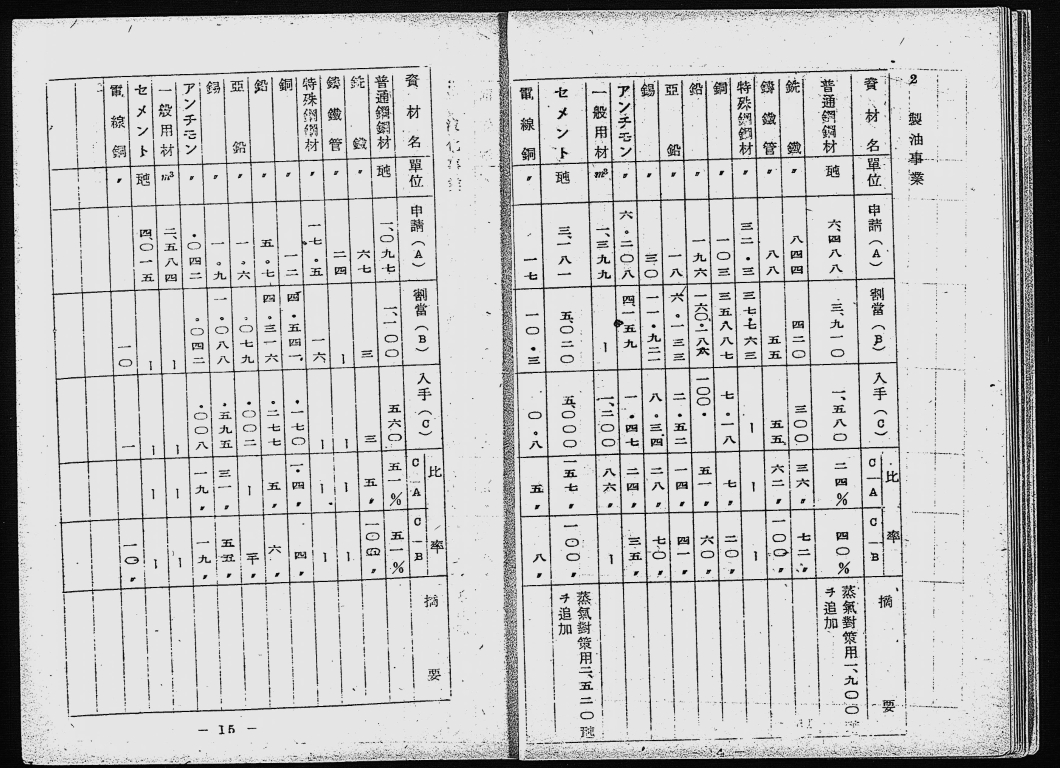 2 製油事業
資材名 單位 申請(A) 割當(B) 入手(C) 比率 C—A C—B 摘要
普通鋼鋼材 瓲 六、四八八 三、九一〇 一、五八〇 二四% 四〇% 蒸氣對策用一、九〇〇
ヲ追加
銑鐵 〃 八四四 四二〇 三〇〇 三六〃 七二〃
鑄鐵管 〃 八八 五五 五五 六二〃 一〇〇〃
特殊鋼鋼材 〃 三二・三 三七・七六三 ー ー ー
銅 〃 一〇三 三五八八七 七・一八 七〃 二〇〃
鉛 〃 一九六 一六〇・二八六 一〇〇・ 五一〃 六〇〃
亞鉛 〃 一八 六・一三三 二・五二 一四〃 四一〃
錫 〃 三〇 一一・九二一 八・三四 二八〃 七〇〃
アンチモン 〃 六・二〇八 四、一五九 一・四七 二四〃 三五〃
一般用材 m³ 一、三九九 ー 一、二〇〇 八六〃 ー
セメント 瓲 三、一八一 五、〇二〇 五、〇〇〇 一五七〃 一〇〇〃 蒸氣對策用二、五二〇瓲
ヲ追加
電線銅 〃 一七 一〇・三 〇・八 五〃 八〃
資材名 單位 申請(A) 割當(B) 入手(C) 比率 C—A C—B 摘要
普通鋼鋼材 瓲 一、〇九七 一、一〇〇 五六〇 五一% 五一%
銑鐵 〃 六七 三 三 五〃 一〇〇〃
鑄鐵管 〃 二四 ー ー ー ー
特殊鋼鋼材 〃 一七・五 一六 ー ー ー
銅 〃 一二 四・五四一 ・一七〇 一・四〃 四〃
鉛 〃 五・七 四・三一六 ・二七七 五〃 六〃
亞鉛 〃 一・六 ・〇七九 ・〇〇二 ー
錫 〃 一・九 一・〇八八 ・五九五 三一〃 五五〃
アンチモン 〃 ・〇四二 ・〇四二 ・〇〇八 一九〃 一九〃
一般用材 m³ 二、五八四 ー ー ー ー
セメント 瓲 四、〇一五 ー ー ー ー
電線銅 〃 一〇 一 一〇〃
— 15 —